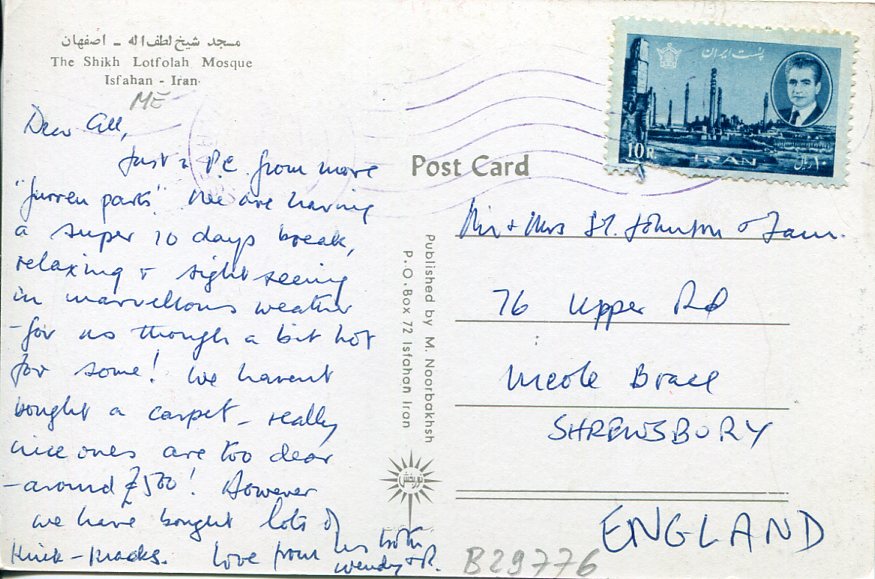 مسجد شیخ لطف اله - اصفهان
The Shikh Lotfolah Mosque
Isfahan - Iran
ME
Dear All,
Just a P.C. from more
"furren parts". We are having
a super 10 days break,
relaxing & sight seeing
in marvellous weather
- for us though a bit hot
for some! We havent
bought a carpet - really
nice ones are too dear
- around £500! However
we have bought lots of
knick-knacks. Love from us both
Wendy & R.
Post Card
Published by M. Noorbakhsh
P.O. Box 72 Isfahan Iran
نوربخش
پست ایران
10 R.
IRAN
۱۰ ریال
Mr & Mrs St. Johnson & Fam.
76 Upper Rd
Meole Brace
SHREWSBURY
ENGLAND
B29776